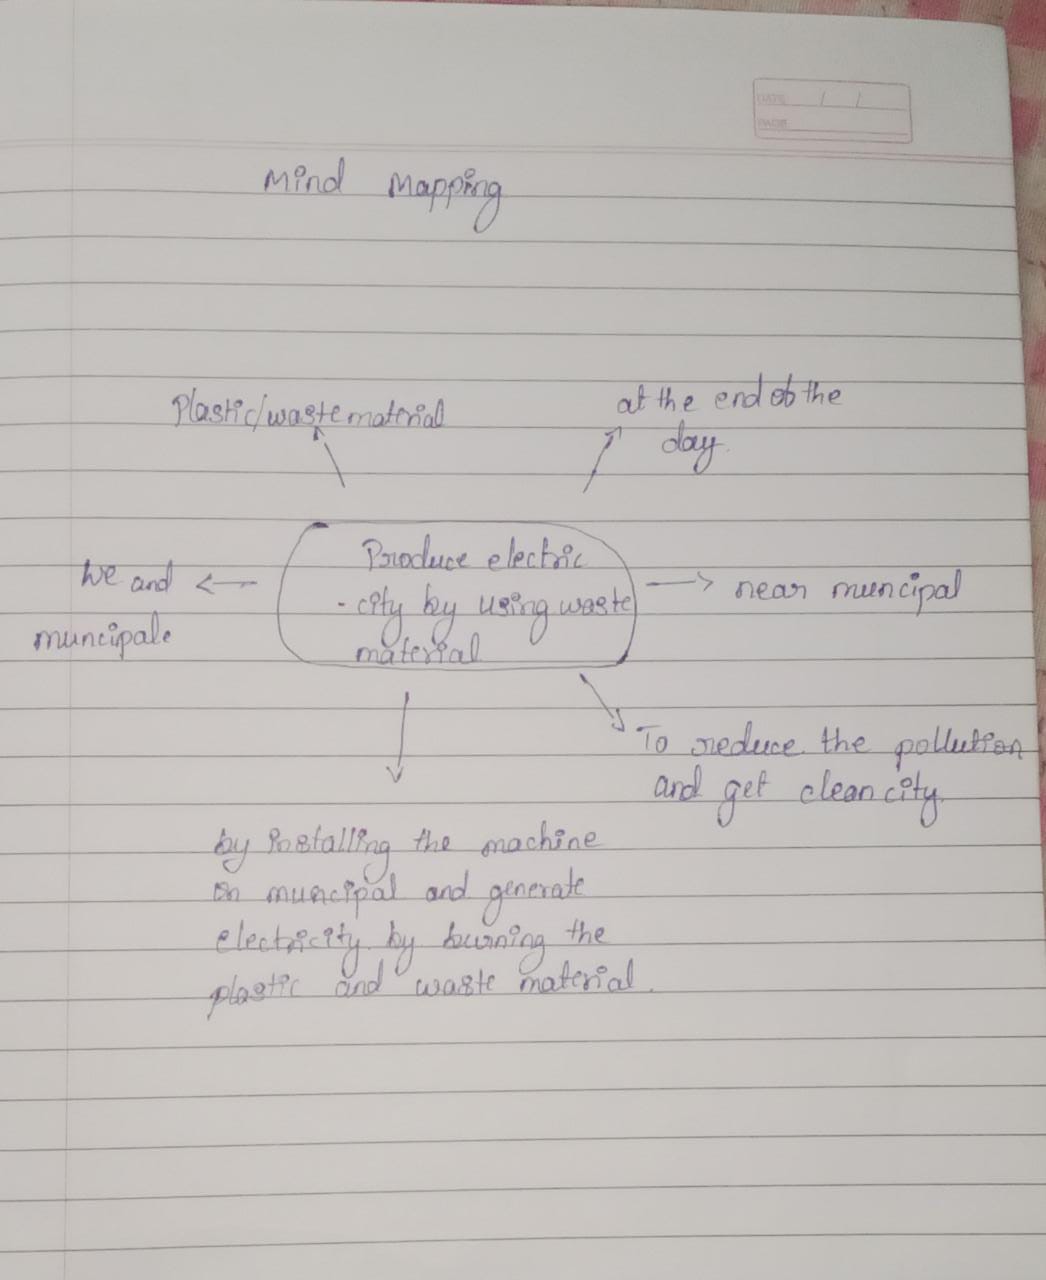 DATE / /
PAGE
Mind Mapping
Plastic/waste material
at the end of the
day.
We and
muncipale
Produce electric
- city by using waste
material
near muncipal
To reduce the pollution
and get clean city.
by installing the machine
in muncipal and generate
electricity by burning the
plastic and waste material.